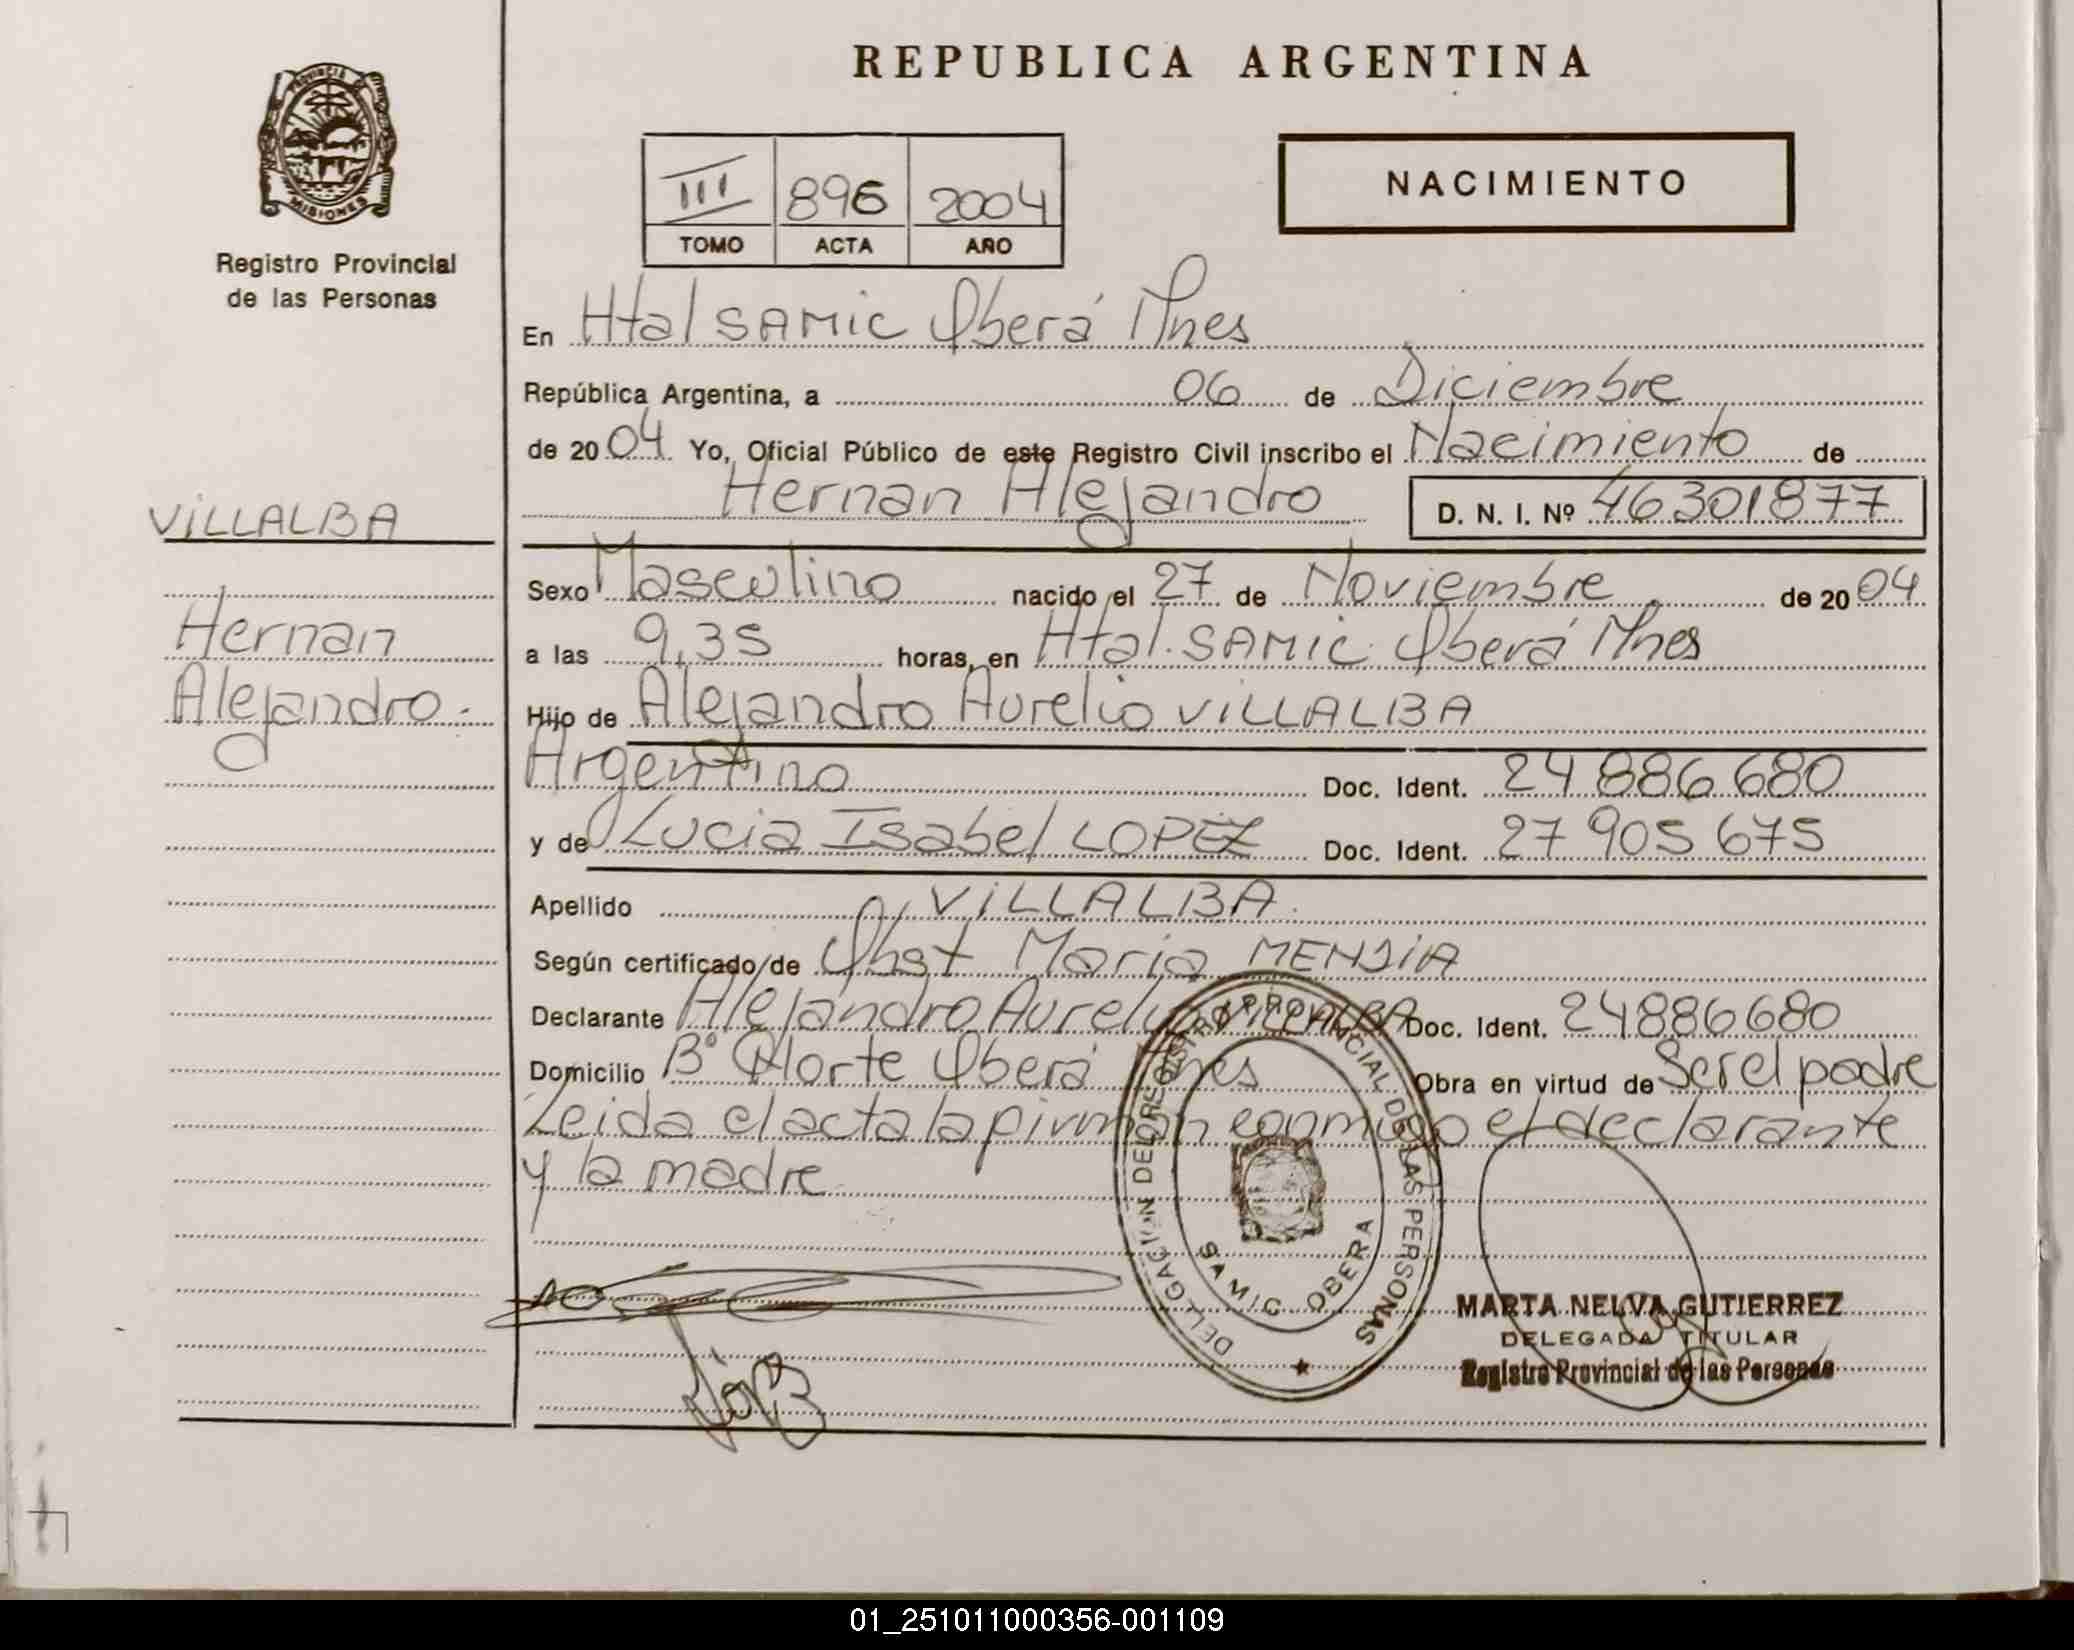 REPUBLICA ARGENTINA
PROVINCIA
MISIONES
Registro Provincial
de las Personas
III 896 2004
TOMO ACTA AÑO
NACIMIENTO
En Htal SAMIC Oberá Mnes
República Argentina, a 06 de Diciembre
de 2004 Yo, Oficial Público de este Registro Civil inscribo el Nacimiento de
Hernan Alejandro D. N. I. Nº 46301877
VILLALBA
Hernan
Alejandro.
Sexo Masculino nacido el 27 de Noviembre de 2004
a las 9,35 horas, en Htal. SAMIC. Oberá Mnes
Hijo de Alejandro Aurelio VILLALBA
Argentino Doc. Ident. 24 886 680
y de Lucia Isabel LOPEZ Doc. Ident. 27 905 675
Apellido VILLALBA.
Según certificado de Obst Maria
Declarante Alejandro Aurelio VILLALBA Doc. Ident. 24886680
Domicilio Bº Norte Oberá Mnes Obra en virtud de Ser el padre
Leida el acta la firman conmigo el declarante
y la madre
DELEGACION DEL REGISTRO PROVINCIAL DE LAS PERSONAS
SAMIC OBERA
MARTA NELVA GUTIERREZ
DELEGADA TITULAR
Registro Provincial de las Personas
01_251011000356-001109